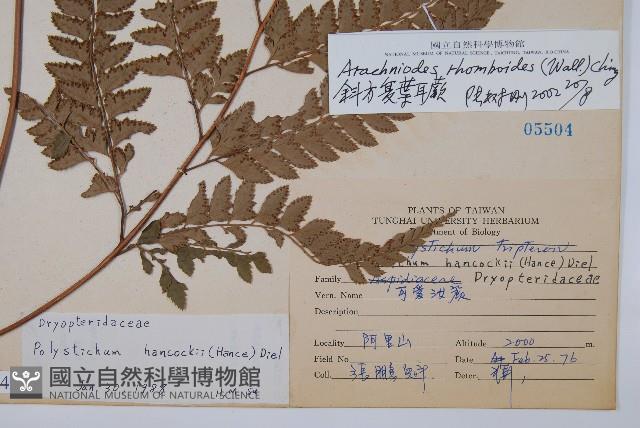 國立自然科學博物館
NATIONAL MUSEUM OF NATURAL SCIENCE, TAICHUNG, TAIWAN, R.O.CHINA
Arachniodes rhomboides (Wall.) Ching
斜方复葉耳蕨 2002
05504
PLANTS OF TAIWAN
TUNGHAI UNIVERSITY HERBARIUM
Department of Biology
Polystichum tripteron
hancockii (Hance) Diel
Family Aspidiaceae Dryopteridaceae
Vern. Name
Description
Locality 阿里山 Altitude 2000 m.
Field No Date Feb. 25. 76
Coll. 張 Deter.
Dryopteridaceae
Polystichum hancockii (Hance) Diel
國立自然科學博物館
NATIONAL MUSEUM OF NATURAL SCIENCE